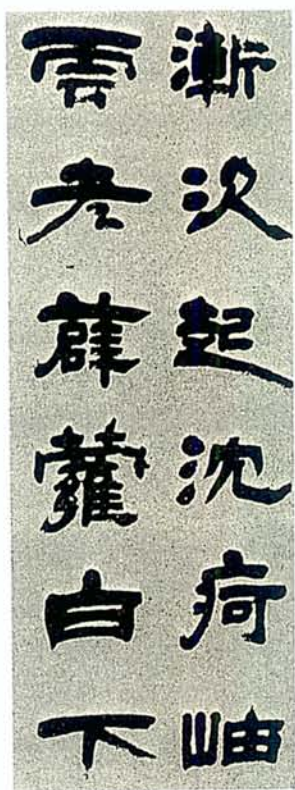 漸次起沈疴岫
雲老薜蘿白下